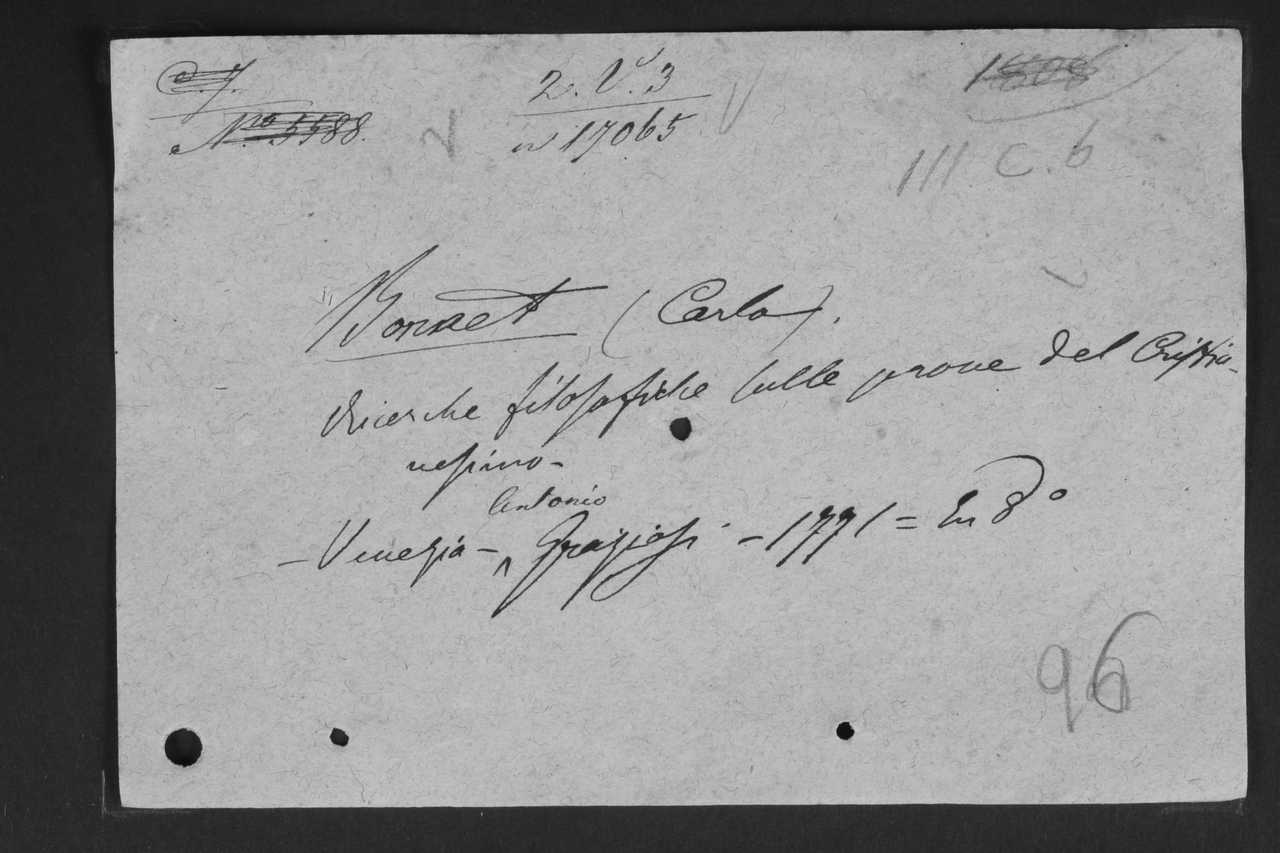 C. 7.
N.º 5588.
2. V. 3
n 17065
III C. 6
Bonnet (Carlo).
Ricerche filosofiche sulle prove del Cristia-
nesimo-
Antonio
- Venezia - Graziosi - 1771 = In 8º
96